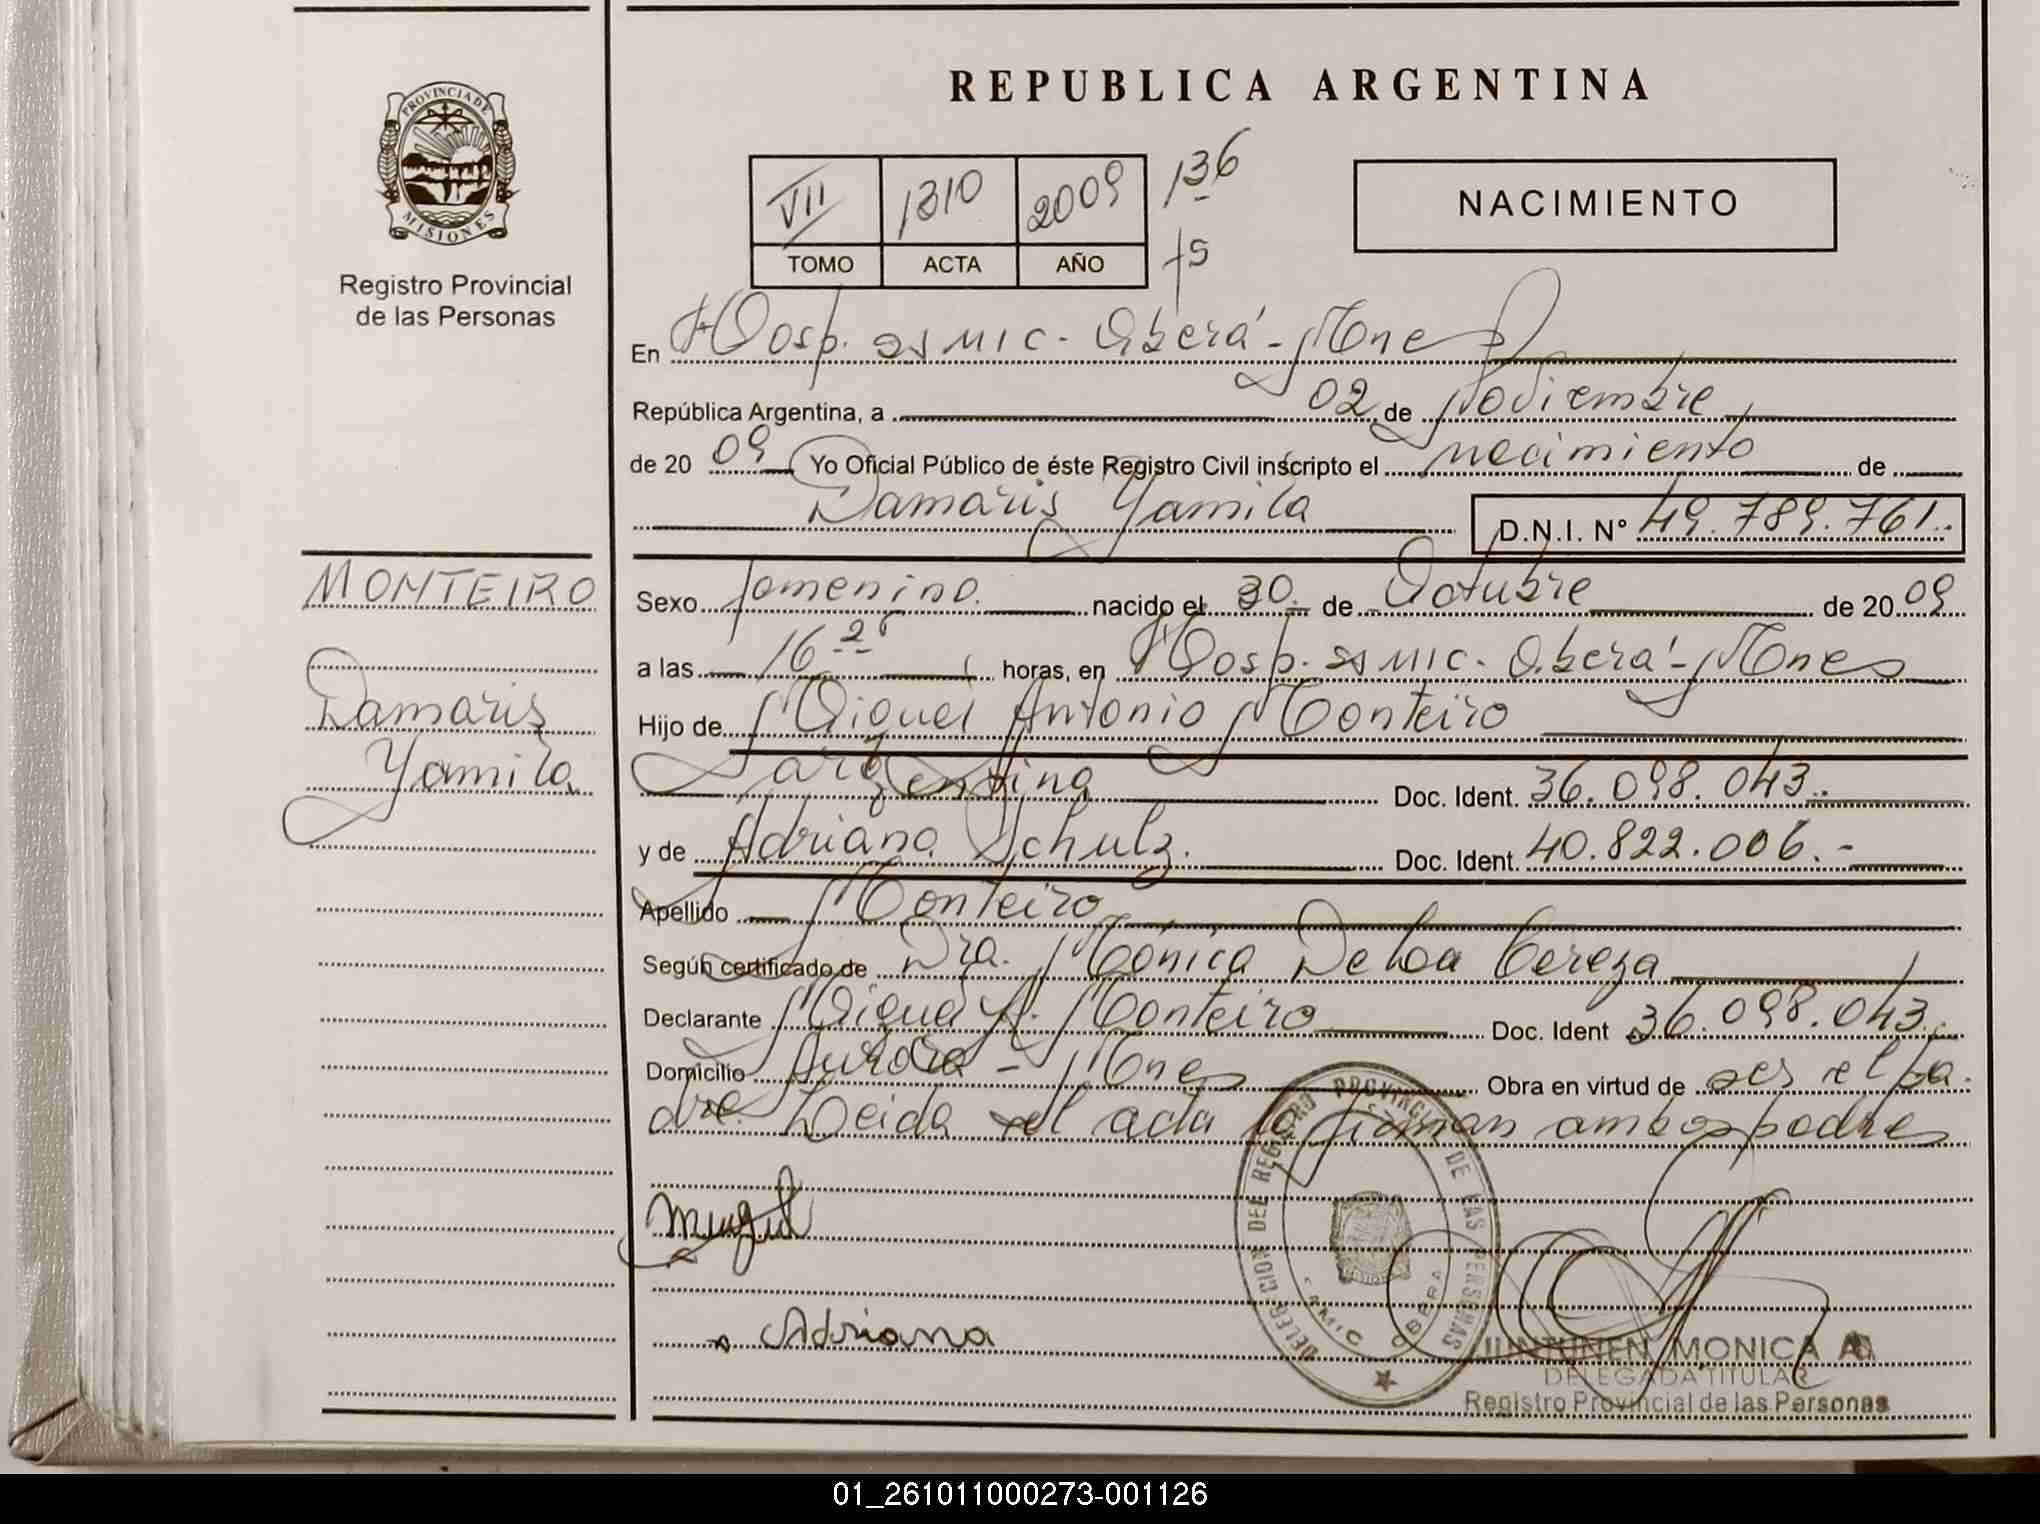 PROVINCIA DE
MISIONES
Registro Provincial
de las Personas
REPUBLICA ARGENTINA
VII 1310 2009 136
TOMO ACTA AÑO fs
NACIMIENTO
En Hosp. SAMIC - Oberá - Mnes
República Argentina, a 02 de Noviembre
de 20 09 Yo Oficial Público de éste Registro Civil inscripto el nacimiento de
Damaris Yamila D.N.I. N° 49.789.761.
MONTEIRO
Damaris
Yamila
Sexo femenino nacido el 30 de Octubre de 20 09
a las 16 25 horas, en Hosp. SAMIC - Oberá - Mnes
Hijo de Miguel Antonio Monteiro
Argentina Doc. Ident. 36.098.043.
y de Adriana Schulz. Doc. Ident. 40.822.006.-
Apellido Monteiro
Según certificado de Dra. Mónica Cereza
Declarante Miguel A. Monteiro Doc. Ident 36.098.043.
Domicilio Aurora - Mnes Obra en virtud de ser el pa
dre. Leida el acta la firman ambos padres
Miguel
Adriana
DELEGACION DEL REGISTRO PROVINCIAL DE LAS PERSONAS
SAMIC OBERA
MONICA A.
DELEGADA TITULAR
Registro Provincial de las Personas
01_261011000273-001126